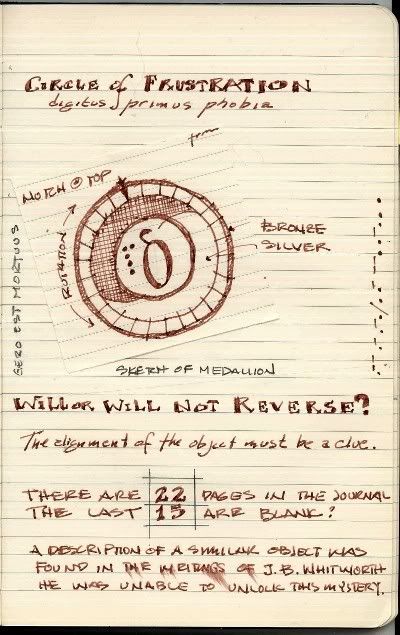 CIRCLE of FRUSTRATION
digitus primus phobia
from
NOTCH @ TOP
ROTATION
0
BRONZE
SILVER
EST MORTUUS
SKETCH OF MEDALLION
WILL OR WILL NOT REVERSE?
The alignment of the object must be a clue.
THERE ARE 22 PAGES IN THE JOURNAL
THE LAST 15 ARE BLANK?
A DESCRIPTION OF A SIMILAR OBJECT WAS
FOUND IN THE WRITINGS OF J.B. WHITWORTH
HE WAS UNABLE TO UNLOCK THIS MYSTERY.